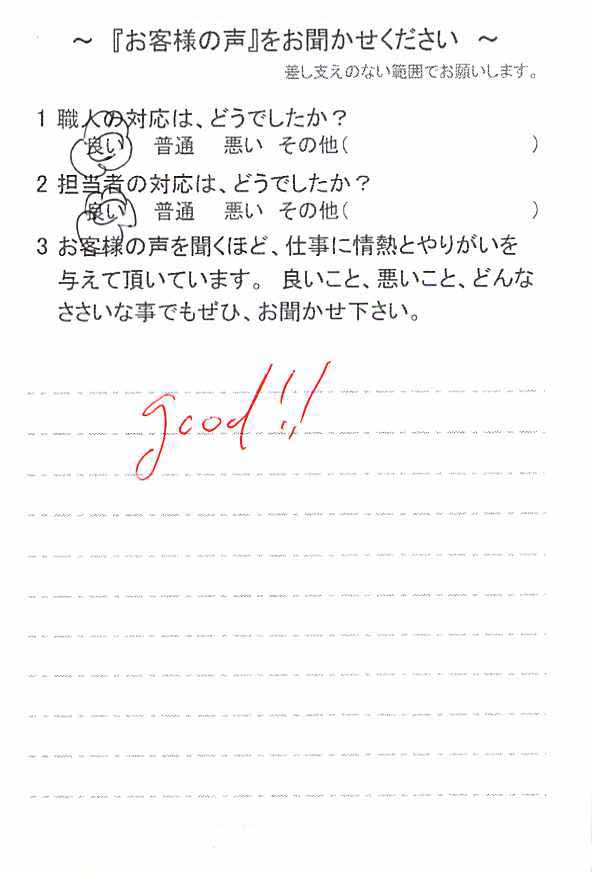 ～ 『お客様の声』をお聞かせください ～
差し支えのない範囲でお願いします。
1 職人の対応は、どうでしたか？
良い 普通 悪い その他( )
2 担当者の対応は、どうでしたか？
良い 普通 悪い その他( )
3 お客様の声を聞くほど、仕事に情熱とやりがいを
与えて頂いています。 良いこと、悪いこと、どんな
ささいな事でもぜひ、お聞かせ下さい。
good!!